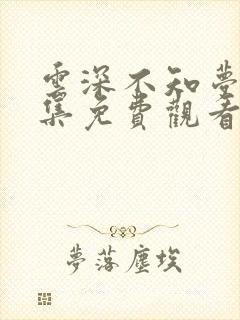 雲深不知夢
集免費觀看
夢落塵埃